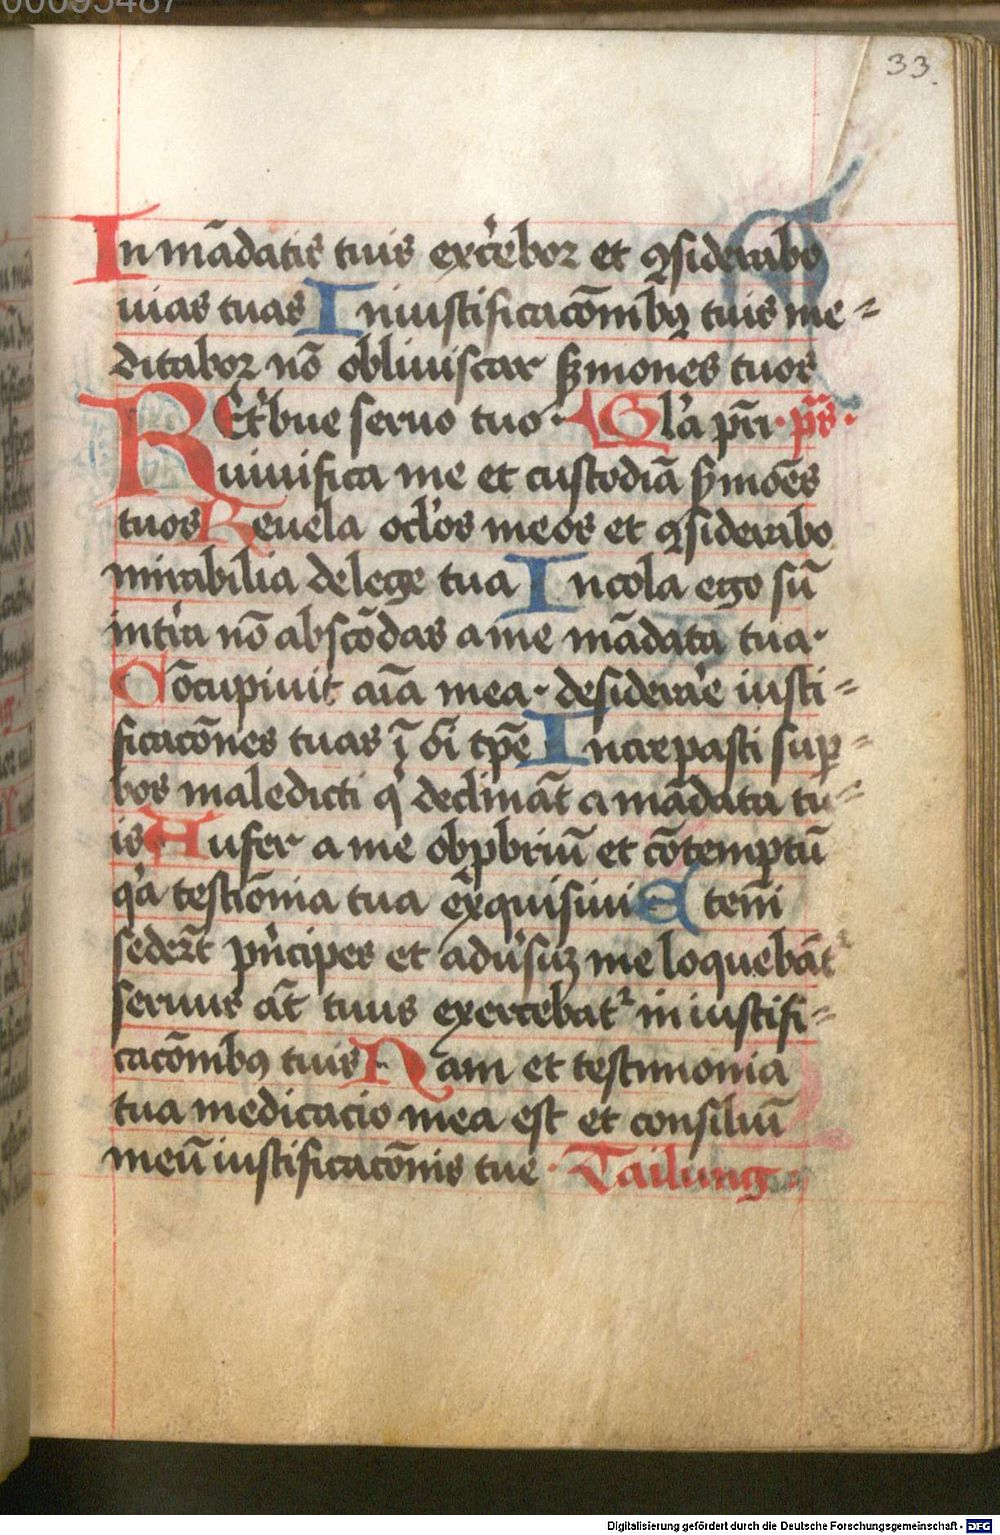 00095487
33.
In mādatis tuis exc̓ebor et ꝯsiderabo
uias tuas In iustificacōnibꝫ tuis me⸗
ditabor nō obliuiscar ẜmones tuos
REt͛bue seruo tuo · Gl̓a pr̄i · p̄s ·
uiuifica me et custodiā ẜmōes
tuos Reuela ocl̓os meos et ꝯsiderabo
mirabilia de lege tua Incola ego sū
int̓ra nō abscōdas a me mādata tua ·
Cōcupiuit aīa mea · desidera̓e iusti⸗
ficacōnes tuas ī oī tp̄e Increpasti suꝑ⸗
bos maledicti q̓ declināt a mādatis tu⸗
is Aufer a me obꝓbriū et cōtemptū
q̓a testiōnia tua exquisiui Etem̄
seder̄t pn̓cipes et adu̓suꝫ me loquebāt᷑
seruus āt tuus exercebat᷑ in iustifi⸗
cacōnibꝰ tuis · Nam et testimonia
tua medicacio mea est et consiliū
meū iustificacōnis tue · Tailung
Digitalisierung gefördert durch die Deutsche Forschungsgemeinschaft - DFG